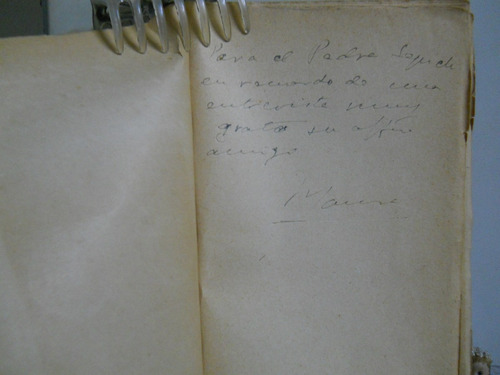 Para el Padre Sepich
en recuerdo de una
entrevista muy
grata su affmo
amigo